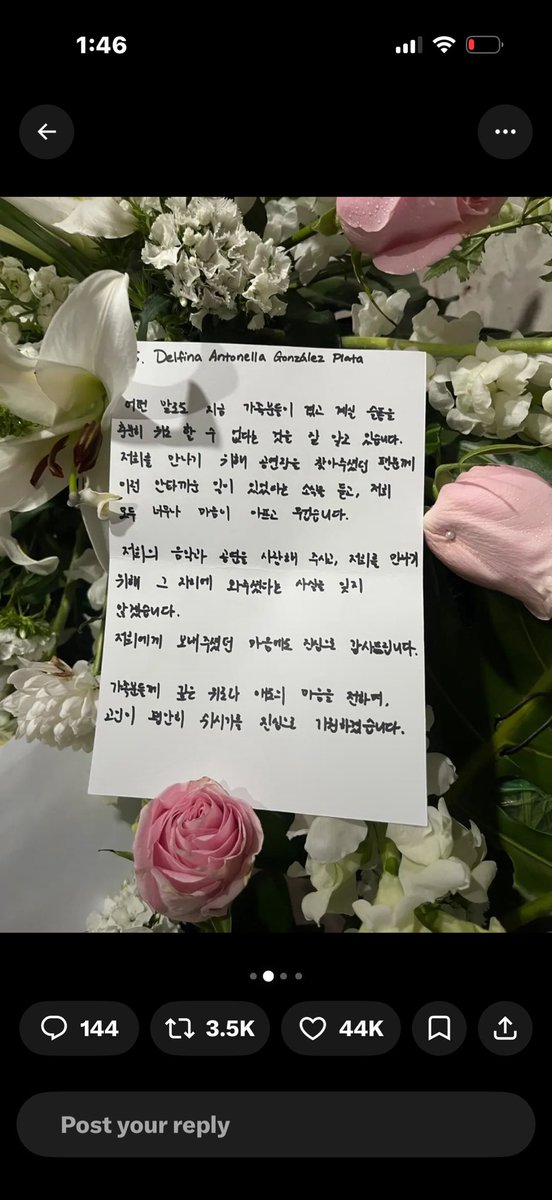 1:46
S. Delfina Antonella González Plata
어떤 말로도 지금 가족분들이 겪고 계실 슬픔을
충분히 위로 할 수 없다는 것을 잘 알고 있습니다.
저희를 만나기 위해 공연장을 찾아주셨던 팬분께
이런 안타까운 일이 있었다는 소식을 듣고, 저희
모두 너무나 마음이 아프고 무겁습니다.
저희의 음악과 공연을 사랑해 주시고, 저희를 만나기
위해 그 자리에 와주셨다는 사실을 잊지
않겠습니다.
저희에게 보내주셨던 마음에도 진심으로 감사드립니다.
가족분들께 깊은 위로와 애도의 마음을 전하며,
고인이 평안히 쉬시기를 진심으로 기원하겠습니다.
144 3.5K 44K
Post your reply